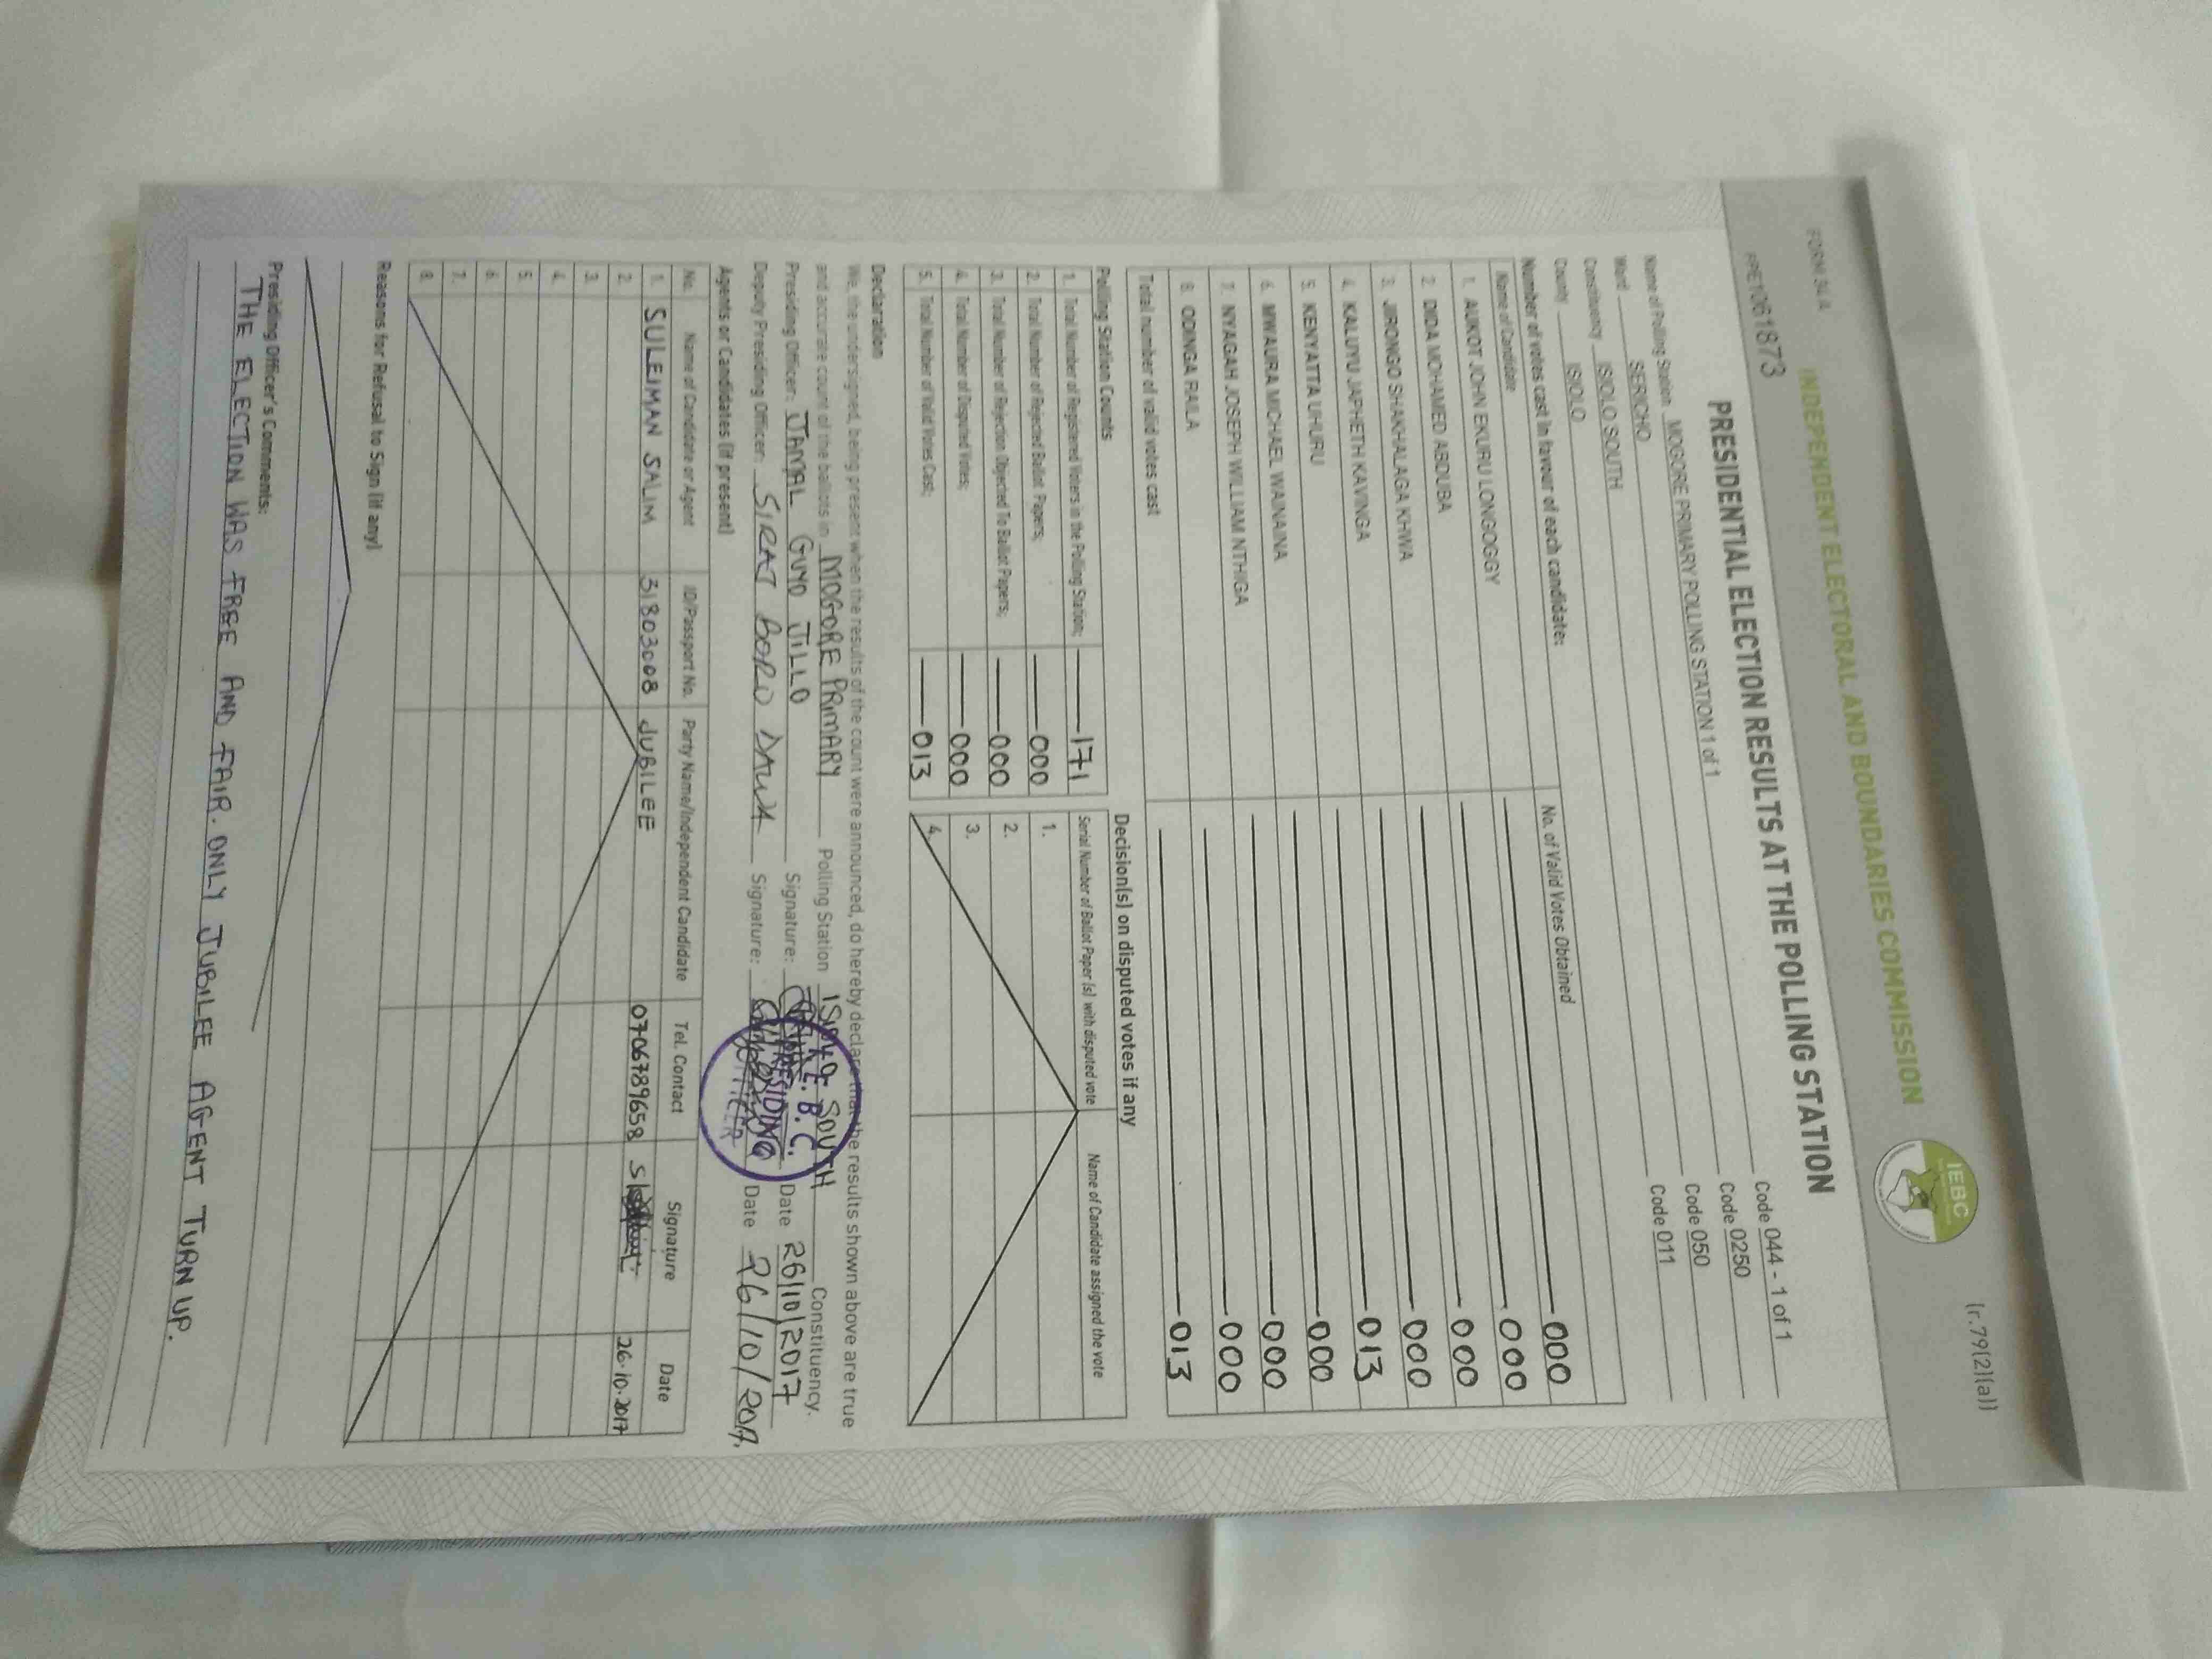 FORM 34 A
(r.79(2)(a))
INDEPENDENT ELECTORAL AND BOUNDARIES COMMISSION
IEBC
PRESIDENTIAL ELECTION RESULTS AT THE POLLING STATION
Name of Polling Station MOGORE PRIMARY POLLING STATION 1 of 1 Code 044 - 1 of 1
Ward SERICHO Code 0250
Constituency ISIOLO SOUTH Code 050
County ISIOLO Code 011
Number of votes cast in favour of each candidate:
Name of Candidate No. of Valid Votes Obtained
1. AUKOT JOHN EKURU LONGOGGY 000
2. DIDA MOHAMED ABDUBA 000
3. JIRONGO SHAKHALAGA KHWA 000
4. KALUYU JAPHETH KAVINGA 000
5. KENYATTA UHURU 013
6. MWAURA MICHAEL WAINAINA 000
7. NYAGAH JOSEPH WILLIAM NTHIGA 000
8. ODINGA RAILA 000
Total number of valid votes cast 013
Polling Station Counts
1. Total Number of Registered Voters in the Polling Station; 171
2. Total Number of Rejected Ballot Papers; 000
3. Total Number of Rejection Objected To Ballot Papers; 000
4. Total Number of Disputed Votes; 000
5. Total Number of Valid Votes Cast; 013
Decision(s) on disputed votes if any
Serial Number of Ballot Paper (s) with disputed vote Name of Candidate assigned the vote
1.
2.
3.
4.
Declaration
We, the undersigned, being present when the results of the count were announced, do hereby declare that the results shown above are true
and accurate count of the ballots in MOGORE PRIMARY Polling Station ISIOLO SOUTH Constituency.
Presiding Officer: JAMAL GUYO JILLO Signature: Date 26/10/2017
Deputy Presiding Officer: SIRAT BORU DAWA Signature: Date 26/10/2017.
I.E.B.C.
PRESIDING
OFFICER
Agents or Candidates (if present)
No. Name of Candidate or Agent ID/Passport No. Party Name/Independent Candidate Tel. Contact Signature Date
1. SULEIMAN SALIM 31803008 JUBILEE 0706789658 26.10.2017
2.
3.
4.
5.
6.
7.
8.
Reasons for Refusal to Sign (if any)
Presiding Officer's Comments:
THE ELECTION WAS FREE AND FAIR. ONLY JUBILEE AGENT TURN UP.